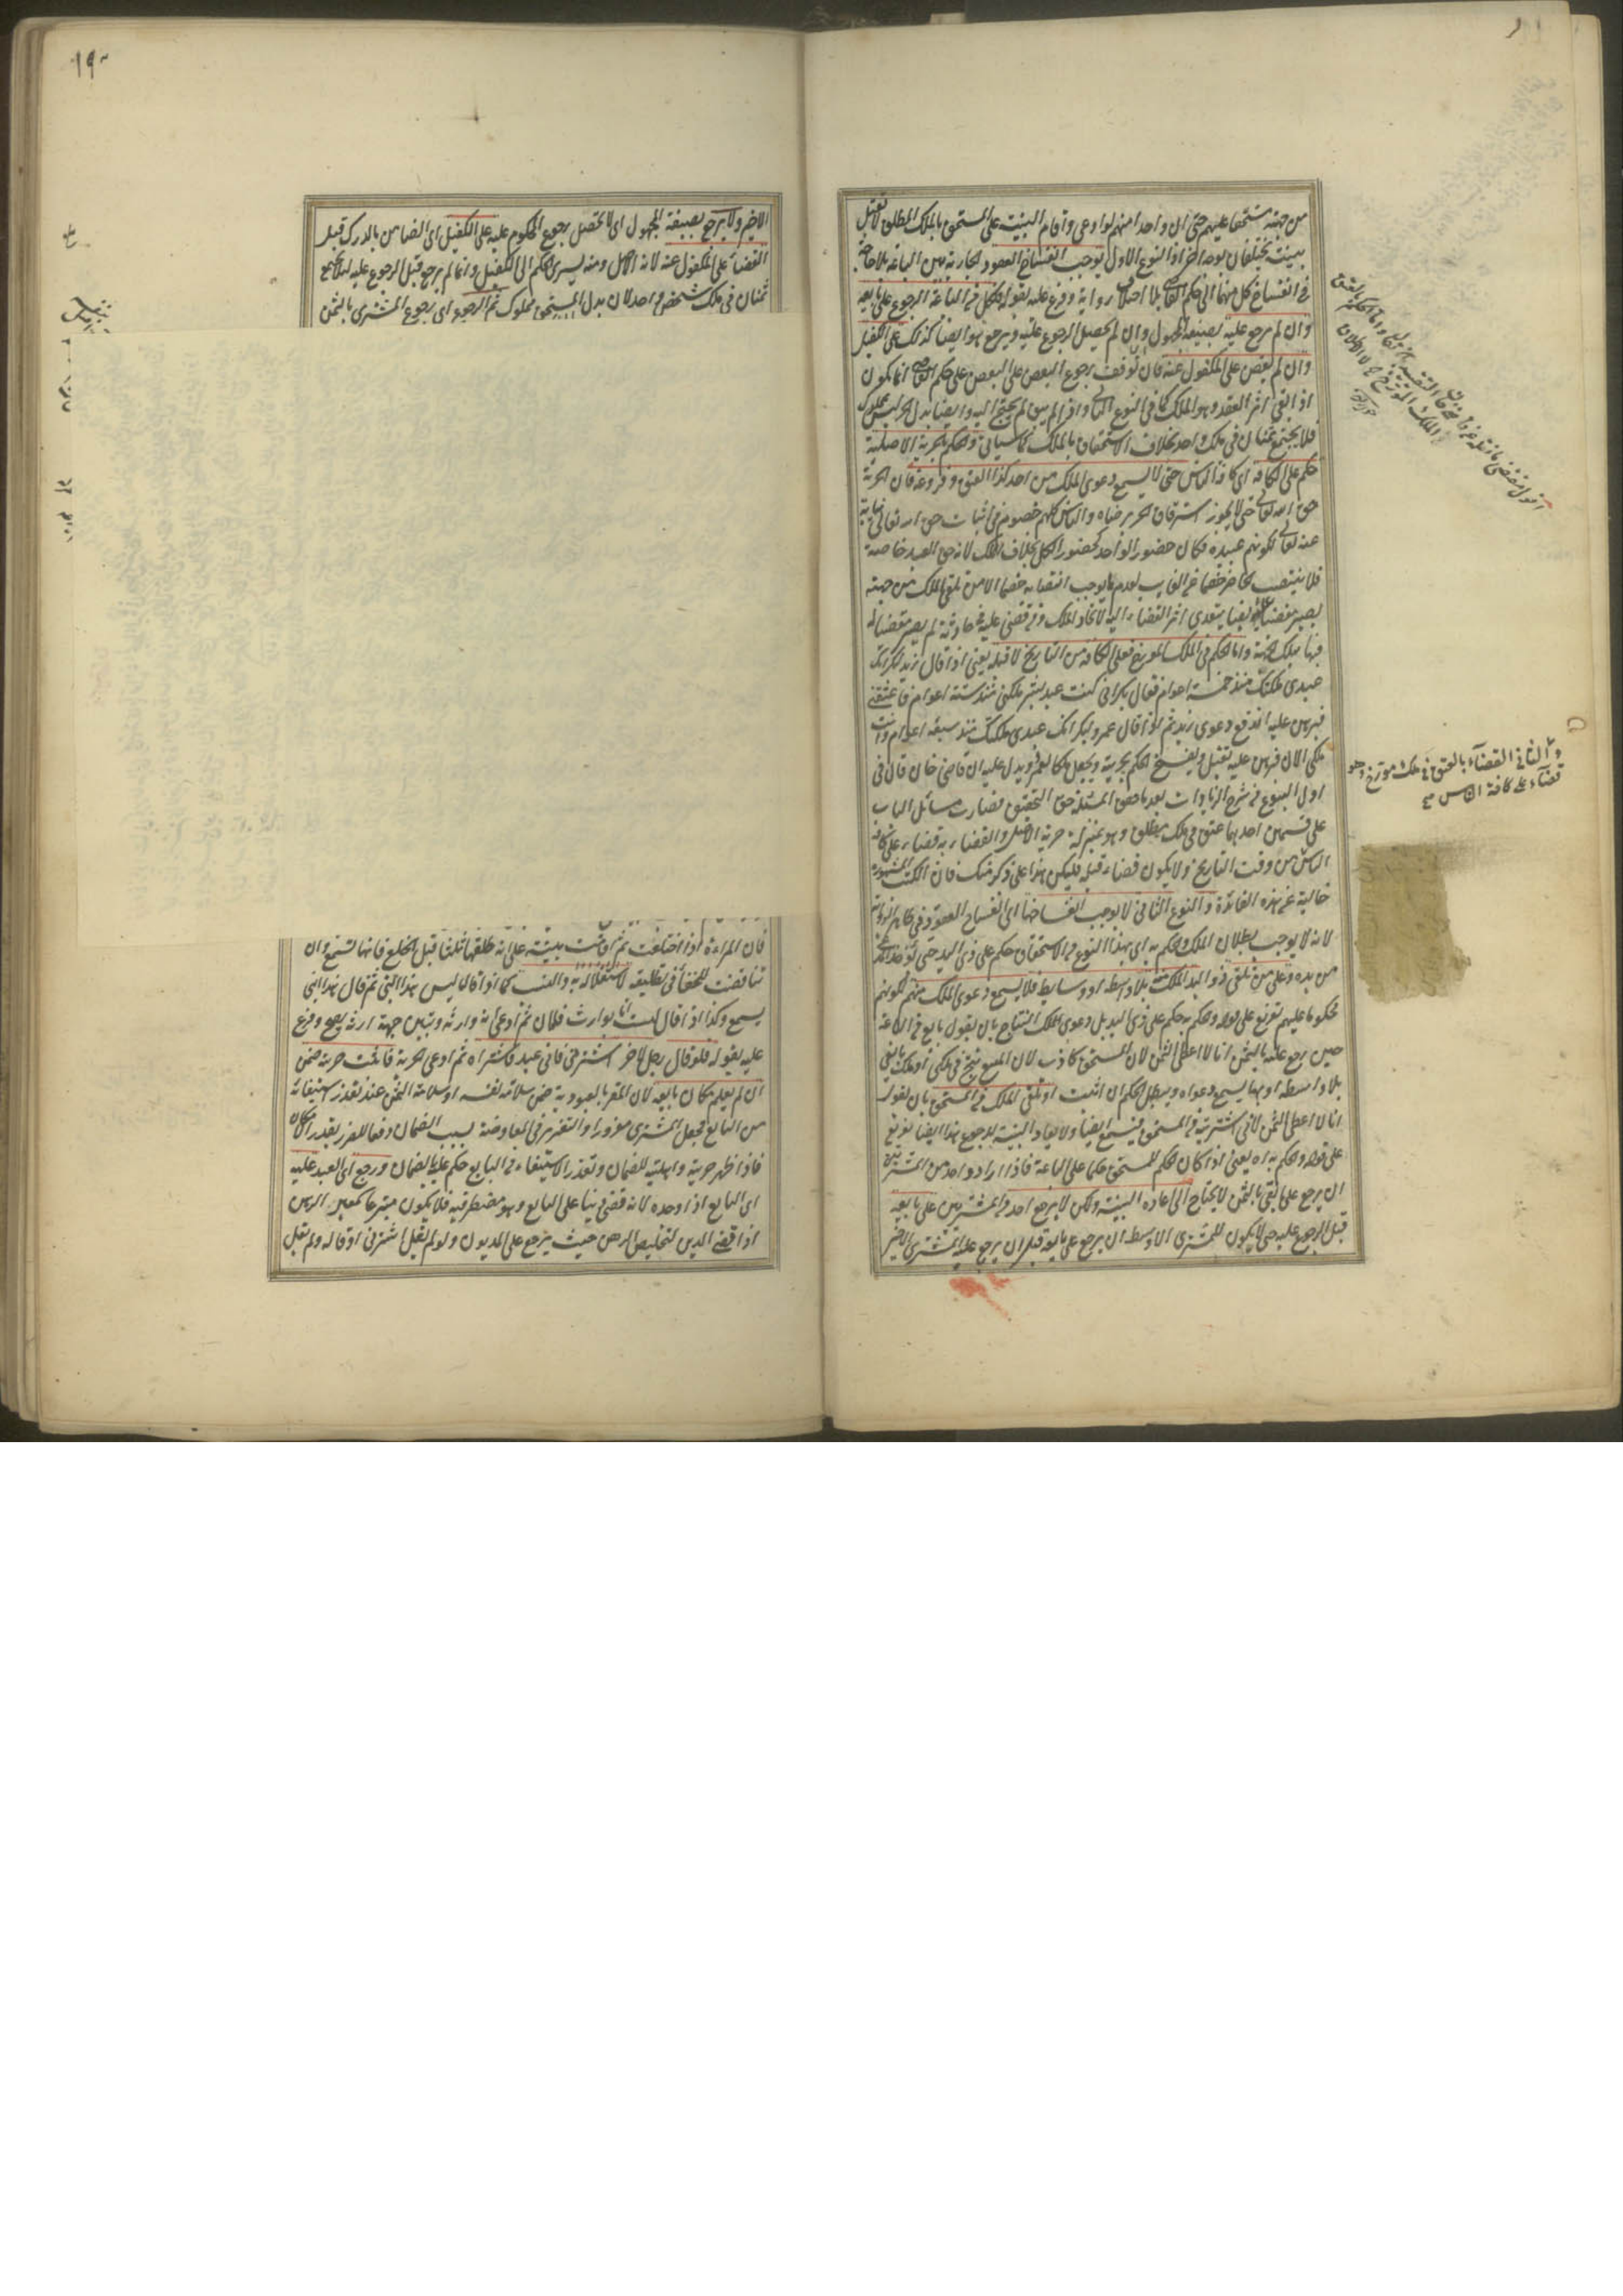 من جهته مستحقا عليهم حتى ان واحدا منهم لو ادعى واقام البينة على المستحق بالملك المطلق لا تقبل
بينته ويختلفان بوجه آخر اذ النوع الاول يوجب انفساخ العقود الجارية بين الباعة بلا حاجة
في انفساخ كل منها الى حكم القاضي بلا اختلاف رواية وفرع عليه بقوله فلكل من الباعة الرجوع على بايعه
وان لم يرجع عليه بصيغة المجهول وان لم يحصل الرجوع عليه ويرجع هو ايضا كذلك على الكفيل
وان لم يقض على المكفول عنه فان توقف رجوع البعض على البعض على حكم القاضي انما يكون
اذا بقي اثر العقد وهو الملك كما في النوع الثاني واذا لم يبق لم يحتج اليه وايضا بدل الحر ليس بمملوك
فلا يجتمع ثمنان في ملك واحد بخلاف الاستحقاق بالملك كما سيأتي والحكم بالحرية الاصلية
حكم على الكافة اى كافة الناس حتى لا يسمع دعوى الملك من احد كذا العتق وفروعه فان الحرية
حق الله تعالى حتى لا يجوز استرقاق الحر برضاه والناس كلهم خصوم في اثبات حق الله تعالى نيابة
عنه تعالى لكونهم عبيده فكان حضور الواحد كحضور الكل بخلاف الملك لانه حق العبد خاصة
فلا ينتصب الحاضر خصما عن الغايب لعدم ما يوجب انتصابه خصما الا من تلقى الملك من جهته
يصير مقضيا عليه ايضا يتعدى اثر القضاء اليه لاتحاد الملك ومن قضى عليه في حادثة لم يصر مقضيا له
فيها بتلك الجهة واما الحكم في الملك المورخ فعلى الكافة من التاريخ لا قبله يعنى اذا قال زيد لبكر انك
عبدى ملكتك منذ خمسة اعوام فقال بكر انى كنت عبد بشر ملكنى منذ ستة اعوام فاعتقنى
فبرهن عليه اندفع دعوى زيد ثم اذا قال عمرو لبكر انك عبدى ملكتك منذ سبعة اعوام وانت
ملكى الآن فبرهن عليه تقبل ويفسخ الحكم بحريته ويجعل ملكا لعمرو يدل عليه ان قاضى خان قال في
اول البيوع من شرح الزيادات بعد ما حقق المسئلة حق التحقيق فصارت مسائل الباب
على قسمين احدهما عتق في ملك مطلق وهو بمنزلة حرية الاصل والقضاء به قضاء على كافة
الناس من وقت التاريخ ولا يكون قضاء قبله فليكن هذا على ذكر منك فان الكتب المشهورة
خالية عن هذه الفائدة والنوع الثاني لا يوجب انفساخها اى انفساخ العقود في ظاهر الرواية
لانه لا يوجب بطلان الملك والحكم به اى بهذا النوع من الاستحقاق حكم على ذى اليد حتى تؤخذ المدعى
من يده وعلى من تلقى ذو اليد الملك منه بلا واسطة او وسايط فلا يسمع دعوى الملك منهم لكونهم
محكوما عليهم تفريع على قوله والحكم به حكم على ذى اليد بل دعوى الملك النتاج بان يقول بايع من الباعة
حين رجع عليه بالثمن انا لا اعطى الثمن لان المستحق كاذب لان المبيع نتج في ملكى او ملك بايعى
بلا واسطة او بها يسمع دعواه ويبطل الحكم ان اثبت او تلقى الملك من المستحق بان يقول
انا لا اعطى الثمن لانى اشتريته من المستحق فيسمع ايضا ولا يعاد البينة للرجوع هذا ايضا تفريع
على قوله والحكم به اه يعنى اذا كان الحكم للمستحق حكما على الباعة فاذا اراد واحد من المشترين
ان يرجع على بايعه بالثمن لا يحتاج الى اعادة البينة ولكن لا يرجع احد من المشترين على بايعه
قبل الرجوع عليه حتى لا يكون للمشترى الاوسط ان يرجع على بايعه قبل ان يرجع عليه المشترى الاخير
والثاني القضاء بالعتق في ملك مورخ وهو
قضاء على كافة الناس صح
١٩٠
الاخير ولا يرجع بصيغة المجهول اى لا يحصل رجوع المحكوم عليه على الكفيل اى الضامن بالدرك قبل
القضاء على المكفول عنه لانه الاصل ومنه يسرى الحكم الى الكفيل وانما لم يرجع قبل الرجوع عليه لئلا يجتمع
ثمنان في ملك شخص واحد لان بدل المستحق مملوك ثم الرجوع اى رجوع المشترى بالثمن
فان المرأة اذا اختلعت ثم اقامت بينة على انه طلقها ثلثا قبل الخلع فانها تسمع وان
تناقضت للخفاء في تطليقه لاستقلاله به والنسب كما اذا قال ليس هذا ابنى ثم قال هذا ابنى
يسمع وكذا اذا قال لست انا بوارث فلان ثم ادعى انه وارثه وبين جهة ارثه يصح وفرع
عليه بقوله فلو قال رجل لآخر اشترنى فانى عبد فاشتراه ثم ادعى الحرية فاثبت حريته ضمن
ان لم يعلم مكان بايعه لان المقر بالعبودية ضمن سلامة نفسه او سلامة الثمن عند تعذر استيفائه
من البايع فجعل المشترى مغرورا والتغرير في المعاوضة سبب الضمان دفعا للغرر بقدر الامكان
فاذا ظهر حريته واهليته للضمان وتعذر الاستيفاء من البايع حكم عليه بالضمان ورجع اى العبد عليه
اى البايع اذا وجده لانه قضى دينا على البايع وهو مضطر فيه فلا يكون متبرعا كمعير الرهن
اذا قضى الدين لتخليص الرهن حيث يرجع على المديون ولو لم يقل اشترنى او قاله ولم يقل